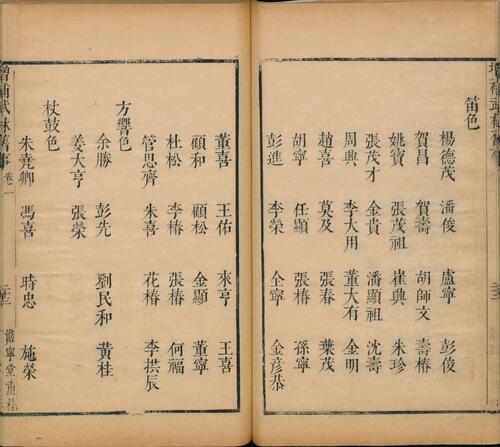 笛色
楊德茂 潘俊 盧寧 彭俊
賀昌 賀壽 胡師文 壽椿
姚寶 張茂祖 崔典 朱珍
張茂才 金貴 潘顯祖 沈壽
周興 李大用 董大有 金明
趙喜 莫及 張春 葉茂
胡寧 任顯 張椿 孫寧
彭進 李榮 全寧 金彥恭
董喜 王佑 來亨 王喜
顧和 顧松 金顯 董寧
杜松 李椿 張椿 何福
管思齊 朱喜 花椿 李拱辰
方響色
余勝 彭先 劉民和 黃桂
姜大亨 張榮
杖鼓色
朱堯卿 馮喜 時忠 施榮
增補武林舊事 卷一
澹寧堂重梓